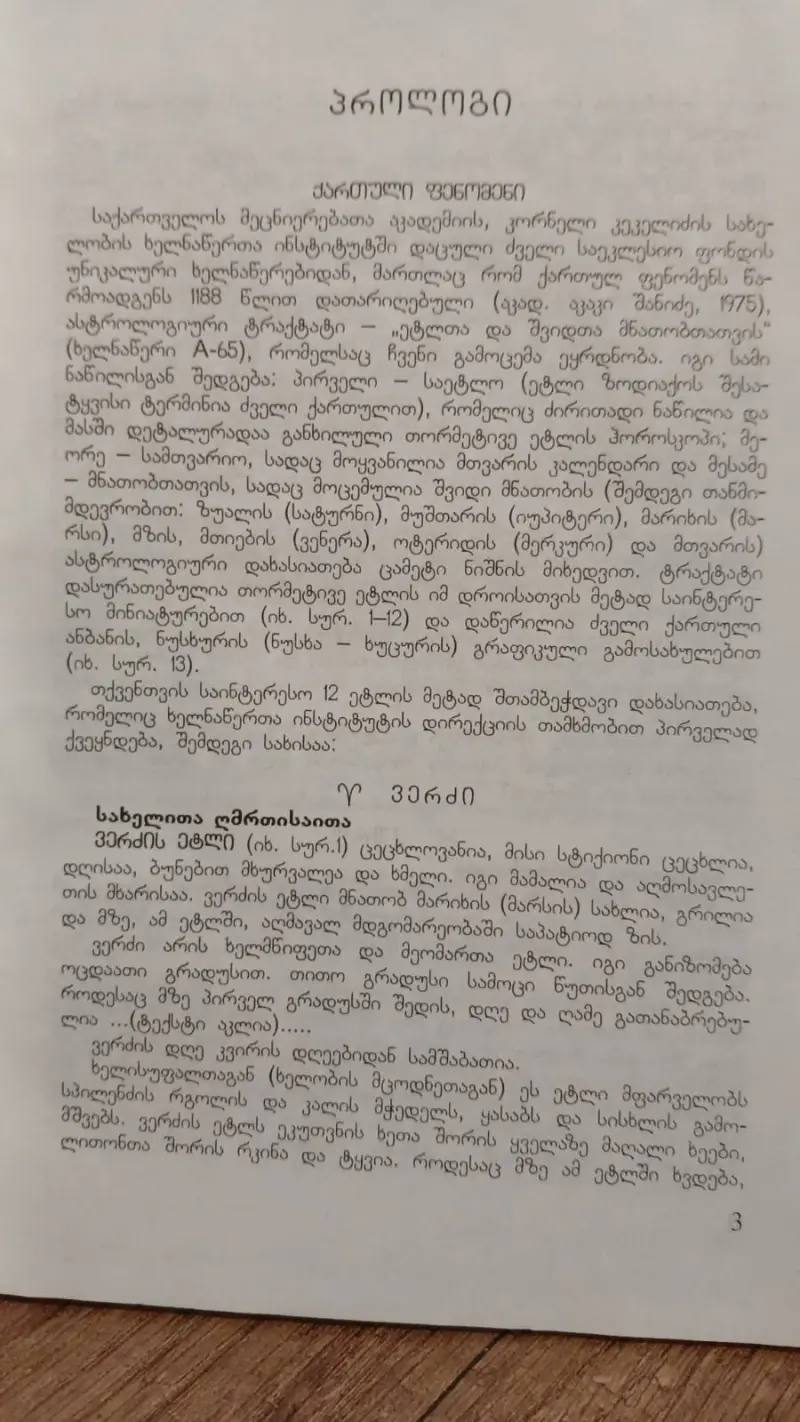 პროლოგი
ქართული ფენომენი
საქართველოს მეცნიერებათა აკადემიის, კორნელი კეკელიძის სახე-
ლობის ხელნაწერთა ინსტიტუტში დაცული ძველი საეკლესიო ფონდის
უნიკალური ხელნაწერებიდან, მართლაც რომ ქართულ ფენომენს წა-
რმოადგენს 1188 წლით დათარიღებული (აკად. აკაკი შანიძე, 1975),
ასტროლოგიური ტრაქტატი – „ეტლთა და შვიდთა მნათობთათვის“
(ხელნაწერი A-65), რომელსაც ჩვენი გამოცემა ეყრდნობა. იგი სამი
ნაწილისგან შედგება: პირველი – საეტლო (ეტლი ზოდიაქოს შესა-
ტყვისი ტერმინია ძველი ქართულით), რომელიც ძირითადი ნაწილია და
მასში დეტალურადაა განხილული თორმეტივე ეტლის ჰოროსკოპი; მე-
ორე – სამთვარიო, სადაც მოყვანილია მთვარის კალენდარი და მესამე
– მნათობთათვის, სადაც მოცემულია შვიდი მნათობის (შემდეგი თანმი-
მდევრობით: ზუალის (სატურნი), მუშთარის (იუპიტერი), მარიხის (მა-
რსი), მზის, მთიების (ვენერა), ოტერიდის (მერკური) და მთვარის)
ასტროლოგიური დახასიათება ცამეტი ნიშნის მიხედვით. ტრაქტატი
დასურათებულია თორმეტივე ეტლის იმ დროისათვის მეტად საინტერე-
სო მინიატურებით (იხ. სურ. 1–12) და დაწერილია ძველი ქართული
ანბანის, ნუსხურის (ნუსხა – ხუცურის) გრაფიკული გამოსახულებით
(იხ. სურ. 13).
თქვენთვის საინტერესო 12 ეტლის მეტად შთამბეჭდავი დახასიათება,
რომელიც ხელნაწერთა ინსტიტუტის დირექციის თამხმობით პირველად
ქვეყნდება, შემდეგი სახისაა:
♈ ვერძი
სახელითა ღმრთისაითა
ვერძის ეტლი (იხ. სურ.1) ცეცხლოვანია, მისი სტიქიონი ცეცხლია,
დღისაა, ბუნებით მხურვალეა და ხმელი. იგი მამალია და აღმოსავლე-
თის მხარისაა. ვერძის ეტლი მნათობ მარიხის (მარსის) სახლია, გრილია
და მზე, ამ ეტლში, აღმავალ მდგომარეობაში საპატიოდ ზის.
ვერძი არის ხელმწიფეთა და მეომართა ეტლი. იგი განიზომება
ოცდაათი გრადუსით. თითო გრადუსი სამოცი წუთისგან შედგება.
როდესაც მზე პირველ გრადუსში შედის, დღე და ღამე გათანაბრებუ-
ლია ...(ტექსტი აკლია).....
ვერძის დღე კვირის დღეებიდან სამშაბათია.
ხელისუფალთაგან (ხელობის მცოდნეთაგან) ეს ეტლი მფარველობს
სპილენძის რგოლის და კალის მჭედელს, ყასაბს და სისხლის გამო-
მშვებს. ვერძის ეტლს ეკუთვნის ხეთა შორის ყველაზე მაღალი ხეები,
ლითონთა შორის რკინა და ტყვია. როდესაც მზე ამ ეტლში ხვდება,
3